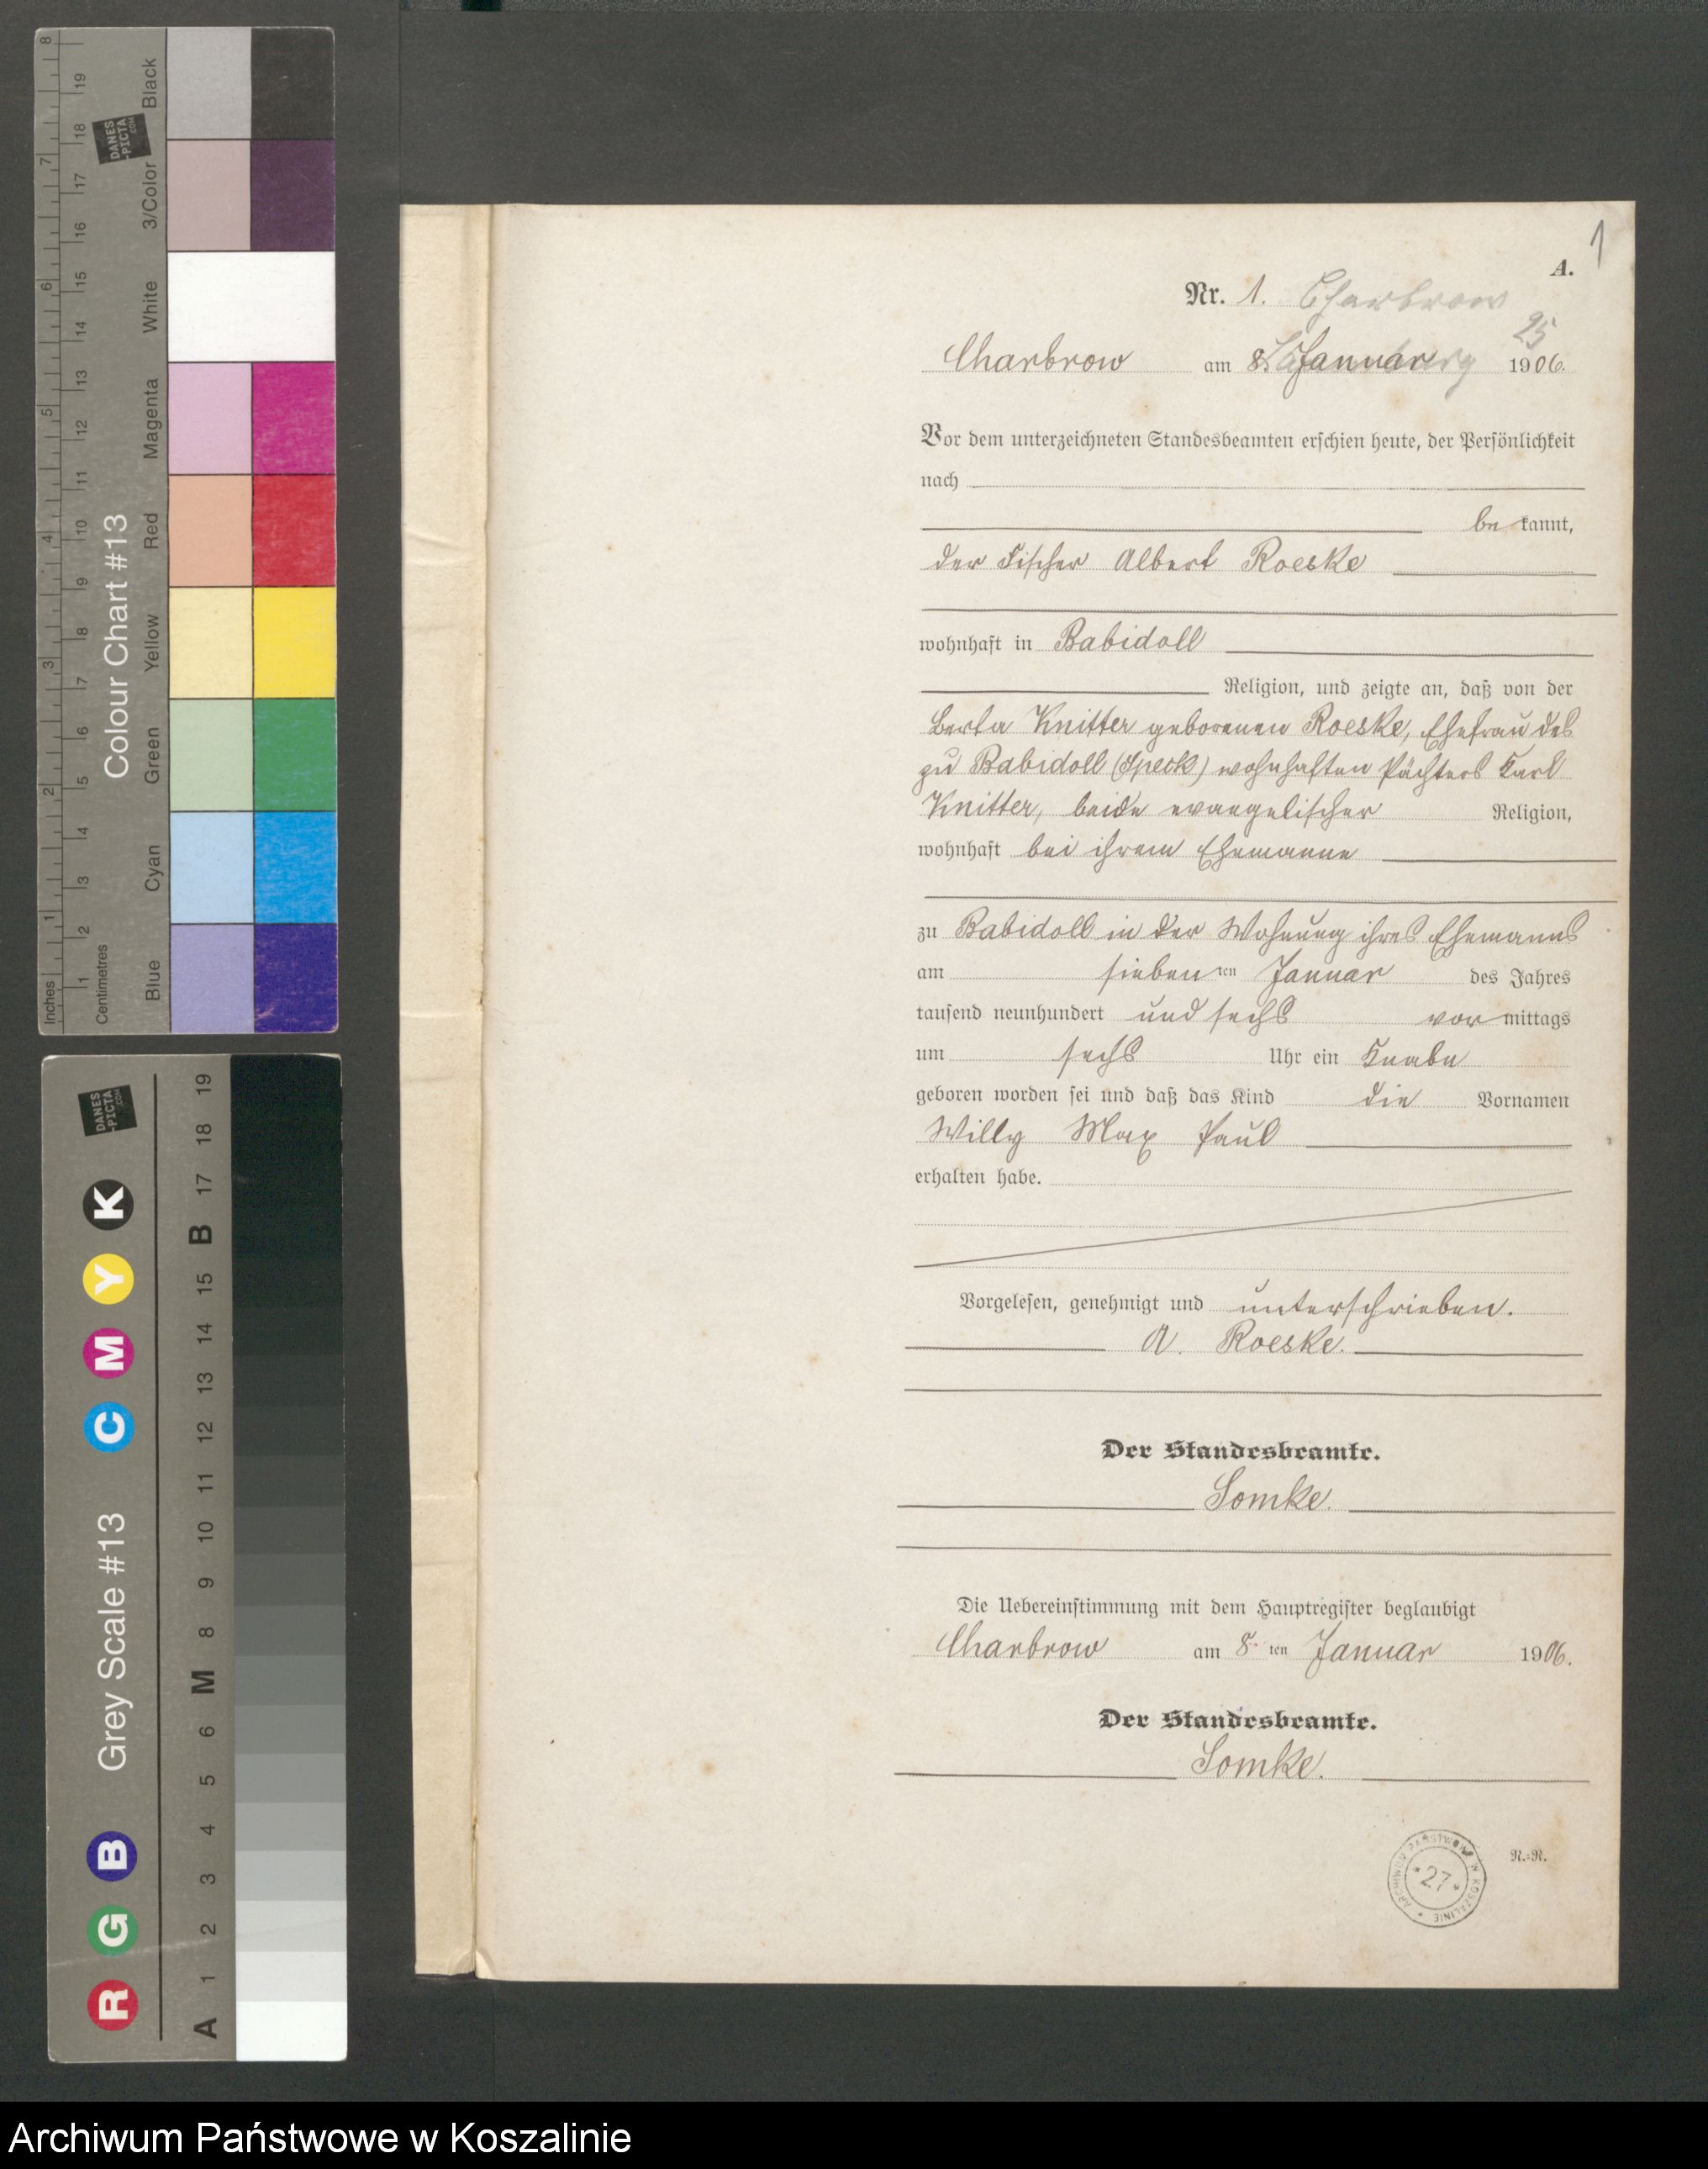 1
A.
Nr. 1. Charbrow
25
Charbrow am 8. Januar 1906.
Vor dem unterzeichneten Standesbeamten erschien heute, der Persönlichkeit
nach
be kannt,
der Fischer Albert Roeske
wohnhaft in Babidoll
Religion, und zeigte an, daß von der
Berta Knitter geborenen Roeske, Ehefrau des
zu Babidoll (Speck) wohnhaften Pächters Karl
Knitter, beide evangelischer Religion,
wohnhaft bei ihrem Ehemanne
zu Babidoll in der Wohnung ihres Ehemanns
am sieben ten Januar des Jahres
tausend neunhundert und sechs vor mittags
um sechs Uhr ein Knabe
geboren worden sei und daß das Kind die Vornamen
Willy Max Paul
erhalten habe.
Vorgelesen, genehmigt und unterschrieben.
A. Roeske.
Der Standesbeamte.
Somke.
Die Uebereinstimmung mit dem Hauptregister beglaubigt
Charbrow am 8. ten Januar 1906.
Der Standesbeamte.
Somke.
ARCHIWUM PAŃSTWOWE W KOSZALINIE
* 27 *
R.=R.
Inches 1 2 3 4 5 6 7 8
Centimetres 1 2 3 4 5 6 7 8 9 10 11 12 13 14 15 16 17 18 19
Colour Chart #13
Blue Cyan Green Yellow Red Magenta White 3/Color Black
DANES
-PICTA
.COM
Grey Scale #13
R G B C M Y K
A 1 2 3 4 5 6 M 8 9 10 11 12 13 14 15 B 17 18 19
DANES
-PICTA
.COM
Archiwum Państwowe w Koszalinie